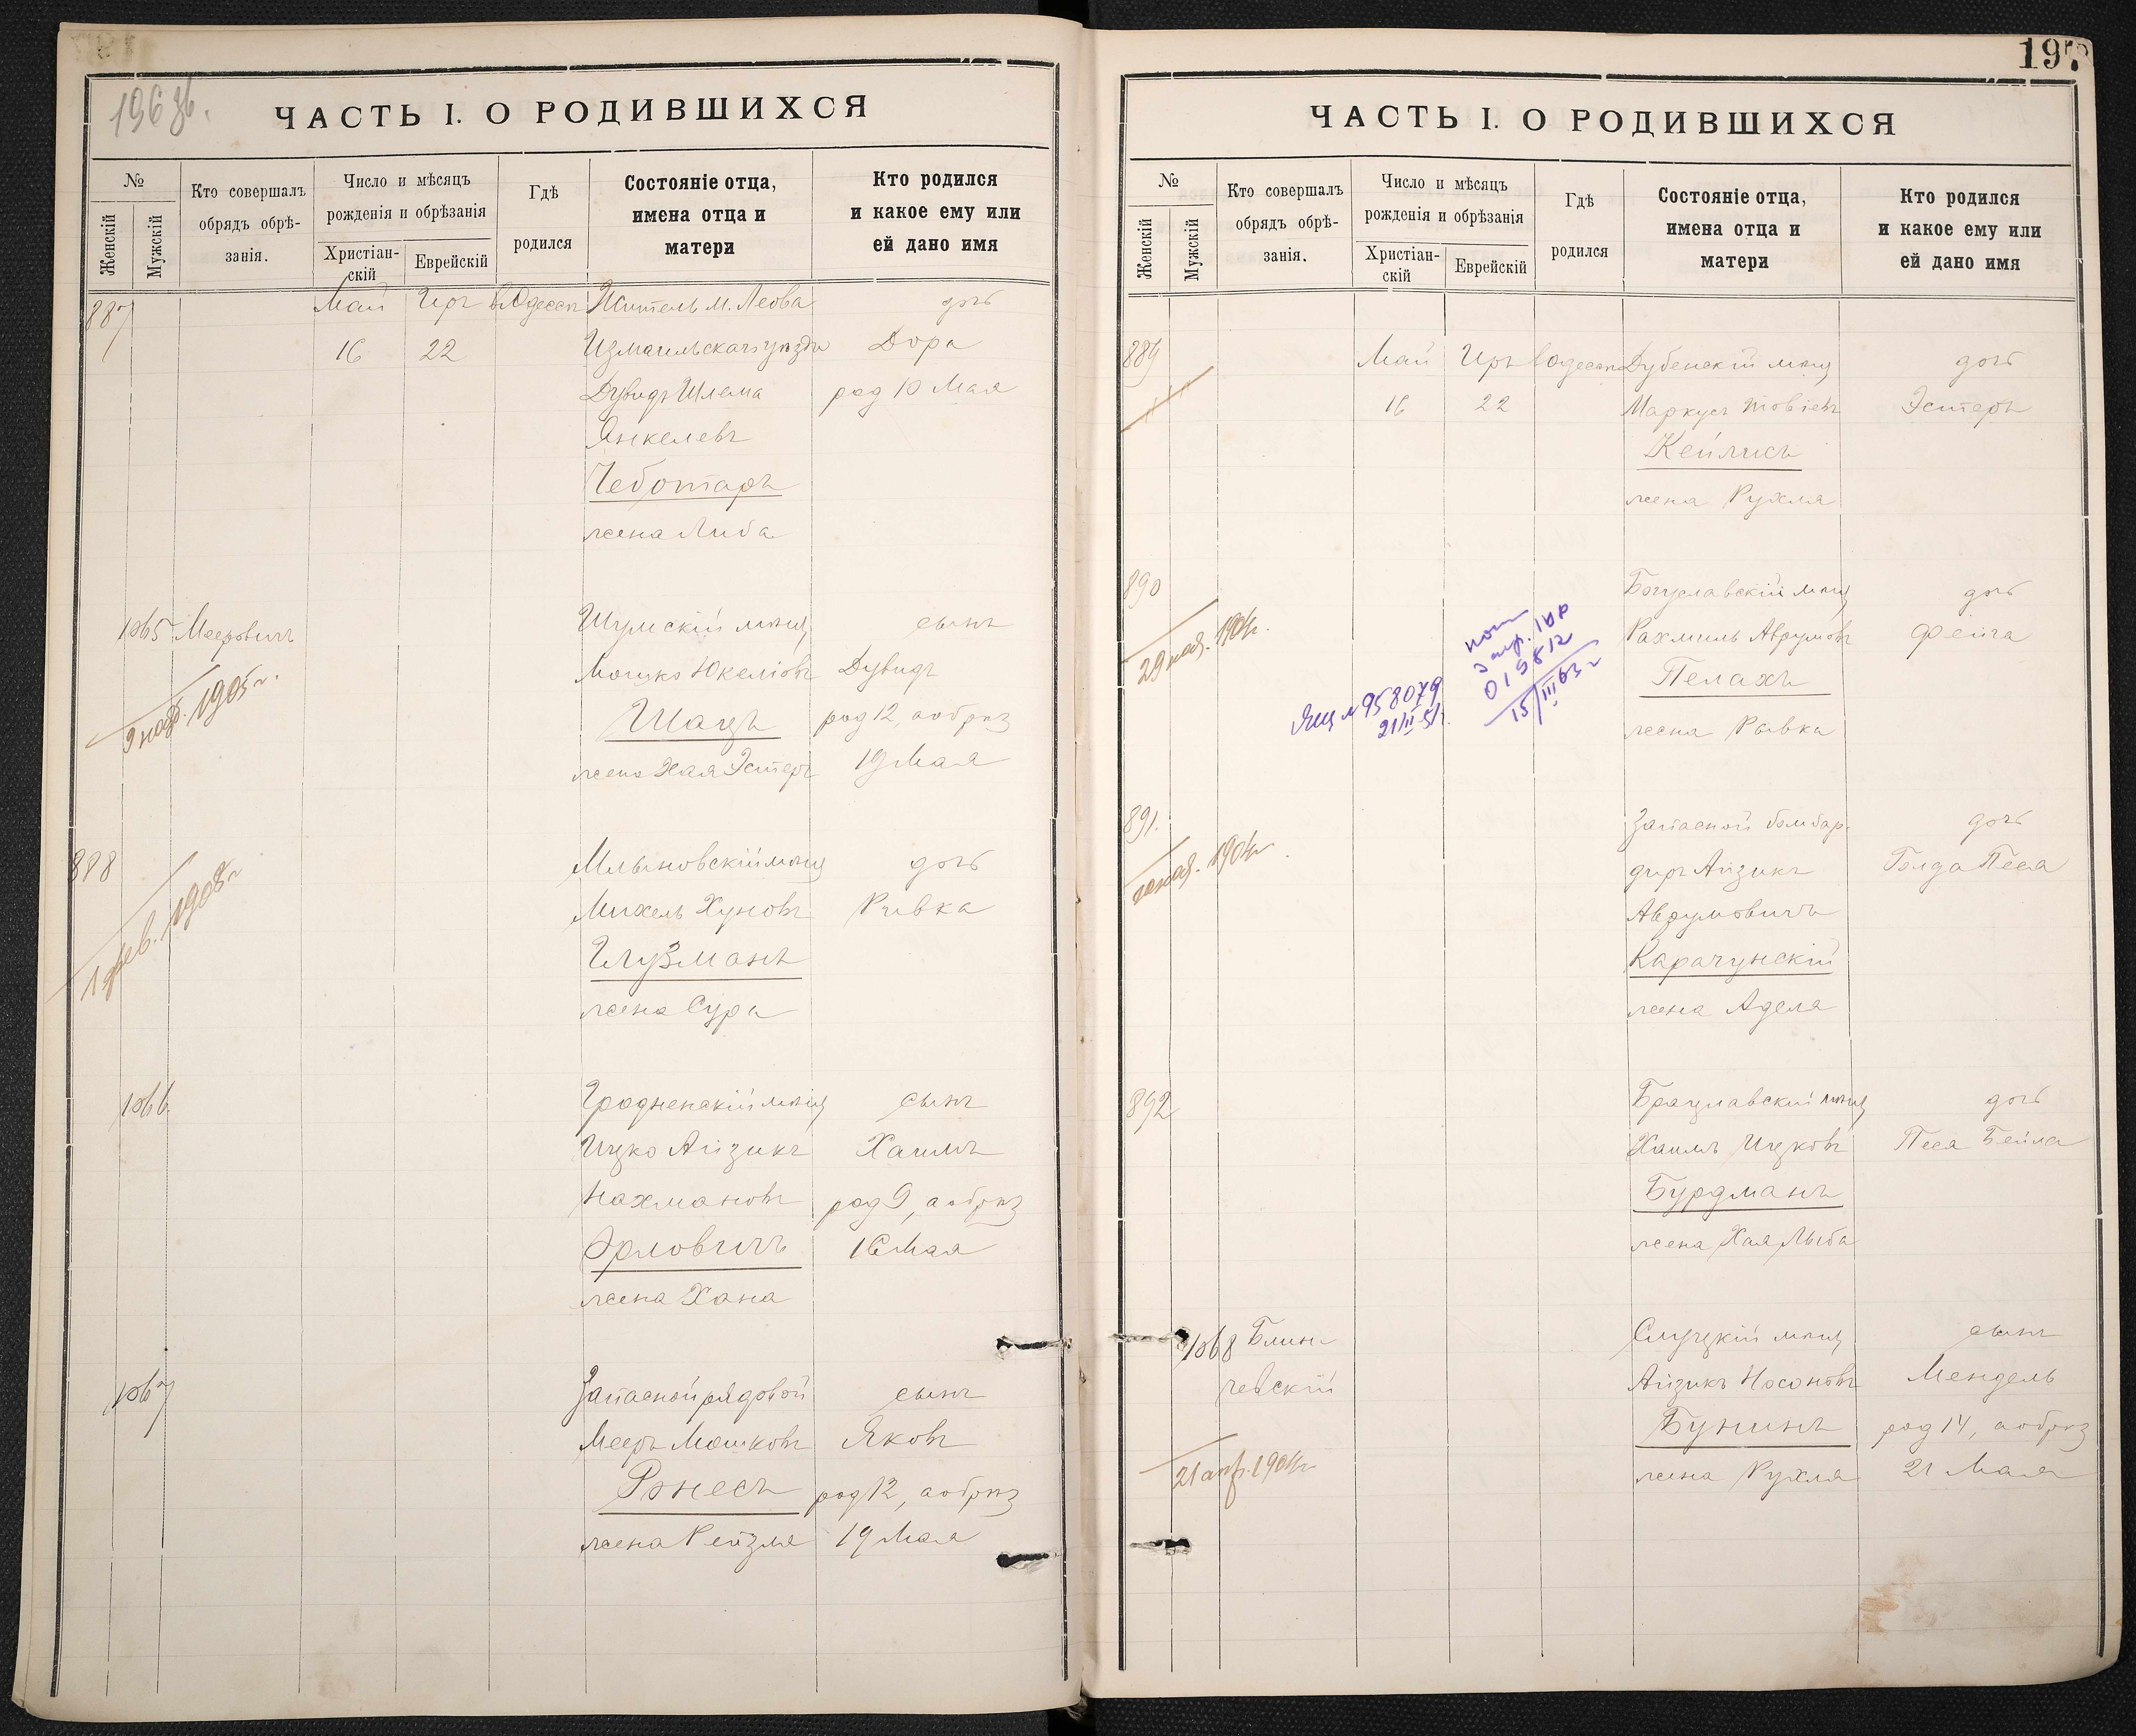 196 об.
ЧАСТЬ I. О РОДИВШИХСЯ
№
Женскій
Мужскій
Кто совершалъ
обрядъ обрѣ-
занія.
Число и мѣсяцъ
рожденія и обрѣзанія
Христіан-
скій
Еврейскій
Гдѣ
родился
Состояніе отца,
имена отца и
матери
Кто родился
и какое ему или
ей дано имя
887 Май Иръ в Одессѣ Житель м. Леова дочь
16 22 Измаильскаго уѣзда Дора
Дувидъ Шлема род 10 Мая
Янкелевъ
Чеботарь
жена Либа
1065 Мееровичъ Шумскій мѣщ сынъ
Мошко Юкеліовъ Дувидъ
9 нояб. 1905 г. Шацъ род 12, а обрѣз
жена Хая Эстеръ 19 Мая
888 Млыновскій мѣщ дочь
Михель Хуновъ Ривка
1 фев. 1908 г Глузманъ
жена Сура
1066 Гродненскій мѣщ сынъ
Ицко Айзикъ Хаимъ
Нахмановъ род 9, а обрѣз
Орловичъ 16 Мая
жена Хана
1067 Запасной рядовой сынъ
Мееръ Мошковъ Яковъ
Рэнесъ род 12, а обрѣз
жена Рейзля 19 Мая
197
ЧАСТЬ I. О РОДИВШИХСЯ
№
Женскій
Мужскій
Кто совершалъ
обрядъ обрѣ-
занія.
Число и мѣсяцъ
рожденія и обрѣзанія
Христіан-
скій
Еврейскій
Гдѣ
родился
Состояніе отца,
имена отца и
матери
Кто родился
и какое ему или
ей дано имя
889 Май Иръ в Одессѣ Дубенскій мѣщ дочь
16 22 Маркусъ Товіевъ Эстеръ
Кейлисъ
жена Рухля
890 Богуславскій мѣщ дочь
Рахмиль Аврумовъ Фейга
29 1904 г. Пелахъ
жена Рывка
958079
21/II-51 г.
015812
15/III 63 г
891. Запасной бомбар- дочь
диръ Айзикъ Голда Песа
1904 г. Аврумовичъ
Карачунскій
жена Адела
892 Брацлавскій мѣщ дочь
Хаимъ Ицковъ Песя Бейла
Бурдманъ
жена Хая Лыба
1068 Блин- Слуцкій мѣщ сынъ
чевскій Айзикъ Носоновъ Мендель
Бунинъ род 14, а обрѣз
21 апр. 1904 г жена Рухля 21 Мая